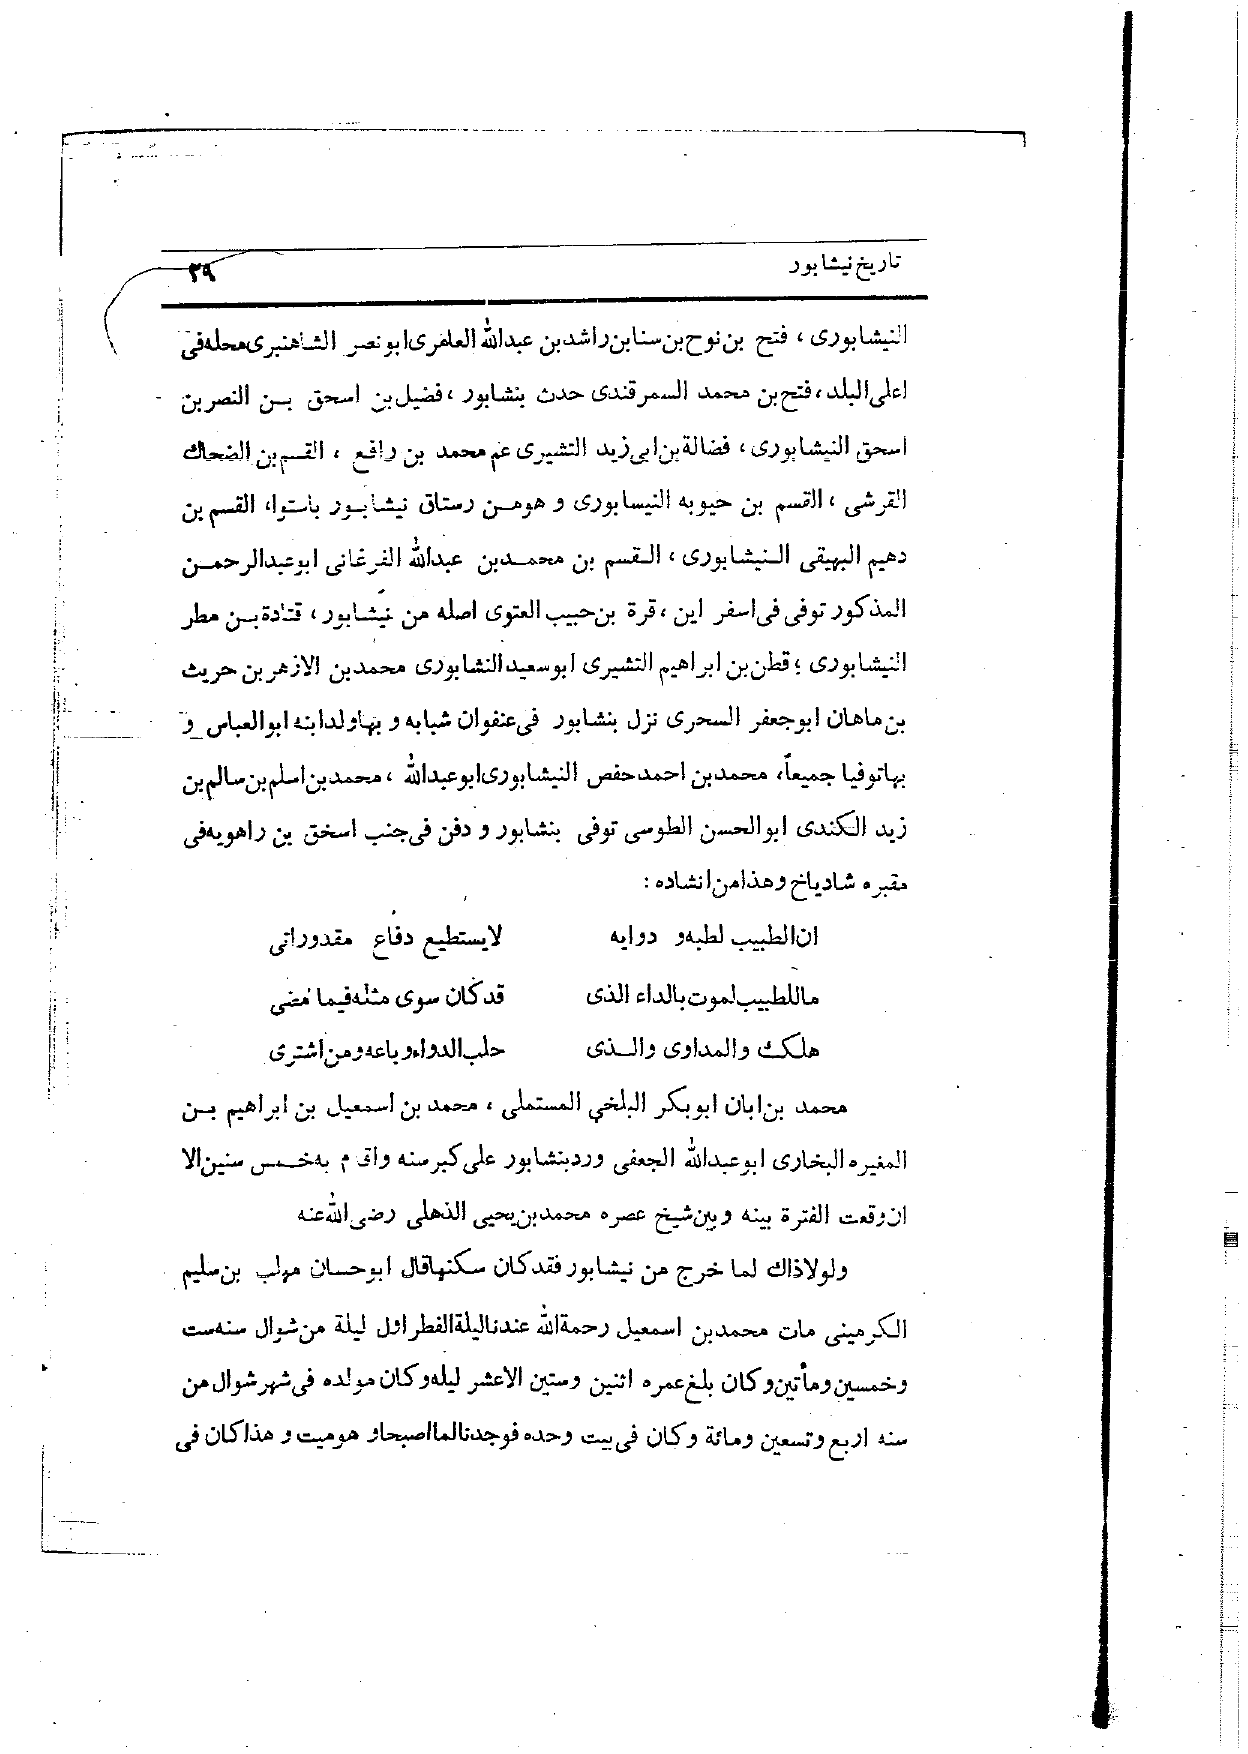 تاریخ نیشابور
۲۹
النیشابوری ، فتح بن نوح بن سنا بن راشد بن عبدالله العامری ابو نصر الشاهنبری محله فی
اعلی البلد ، فتح بن محمد السمرقندی حدث بنشابور ، فضیل بن اسحق بن النصر بن
اسحق النیشابوری ، فضالة بن ابی زید التشیری عم محمد بن رافع ، القسم بن الضحاك
القرشی ، القسم بن حیویه النیسابوری و هو من رستاق نیشابور باستوا، القسم بن
دهیم البهیقی النیشابوری ، القسم بن محمد بن عبدالله الفرغانی ابو عبدالرحمن
المذکور توفی فی اسفر این ، قرة بن حبیب العتوی اصله من نیشابور ، قتادة بن مطر
النیشابوری ؛ قطن بن ابراهیم التشیری ابو سعید النشابوری محمد بن الازهر بن حریث
بن ماهان ابو جعفر السحری نزل بنشابور فی عنفوان شبابه و بها ولد ابنه ابوالعباس و
بها توفیا جمیعاً، محمد بن احمد حفص النیشابوری ابو عبدالله ، محمد بن اسلم بن سالم بن
زید الکندی ابوالحسن الطوسی توفی بنشابور و دفن فی جنب اسحق بن راهویه فی
مقبره شادیاخ و هذا من انشاده :
ان الطبیب لطبه و دوایه لا یستطیع دفاع مقدوراتی
ما للطبیب لموت بالداء الذی قد کان سوی مثله فیما مضی
هلک والمداوی والذی حلب الدواء و باعه و من اشتری
محمد بن ابان ابو بکر البلخی المستملی ، محمد بن اسمعیل بن ابراهیم بن
المغیره البخاری ابو عبدالله الجعفی ورد بنشابور علی کبر سنه واقام به خمس سنین الا
ان وقعت الفترة بینه و بین شیخ عصره محمد بن یحیی الذهلی رضی الله عنه
ولولا ذاك لما خرج من نیشابور فقد کان سکنها قال ابو حسان مهلب بن سلیم
الکرمینی مات محمد بن اسمعیل رحمة الله عندنا لیلة الفطر اول لیلة من شوال سنه ست
و خمسین و مأتین و کان بلغ عمره اثنین وستین الا عشر لیله و کان مولده فی شهر شوال من
سنه اربع و تسعین ومائة و کان فی بیت وحده فوجدنا لما اصبحاز هو میت و هذا کان فی